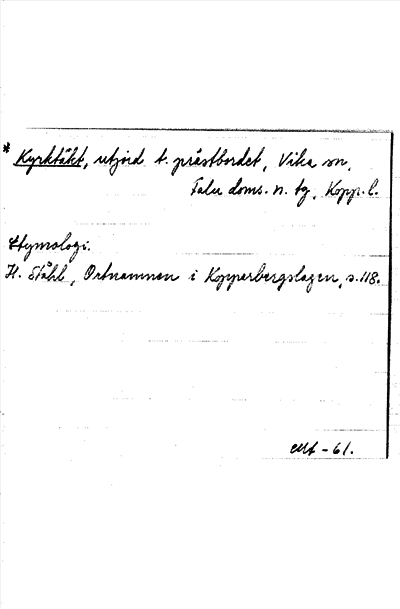 * Kyrktäkt, utjord t. prästbordet, Vika sn,
Falu doms. n. tg, Kopp. l.
Etymologi.
H. Ståhl, Ortnamnen i Kopparbergslagen, s. 118.
-61.